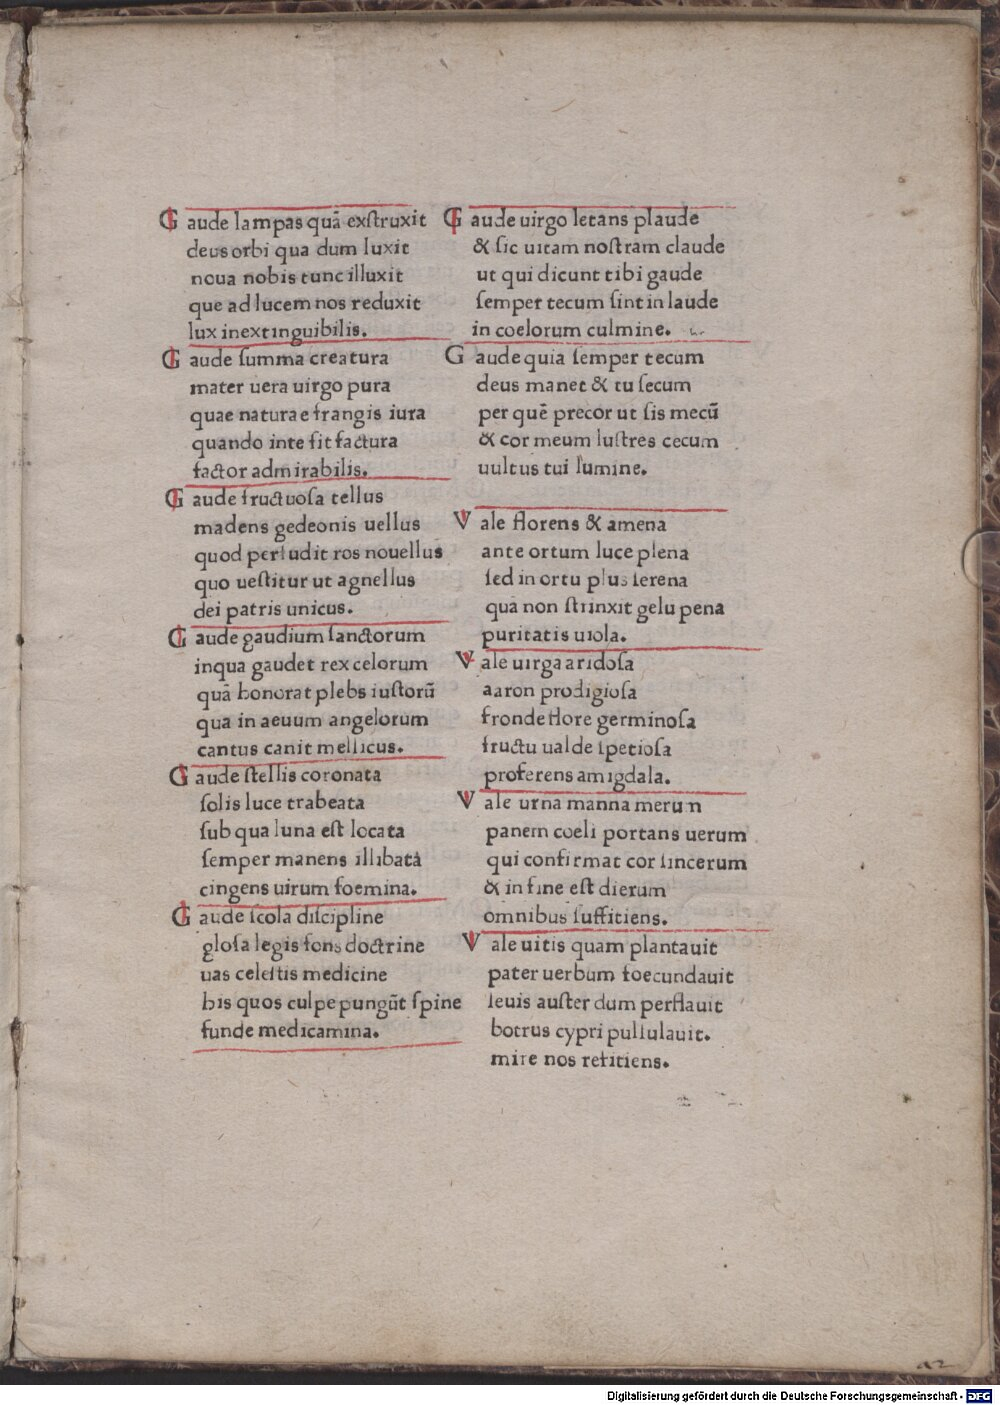 Gaude lampas quā exſtruxit
deus orbi qua dum luxit
noua nobis tunc illuxit
que ad lucem nos reduxit
lux inextinguibilis.
Gaude ſumma creatura
mater uera uirgo pura
quae naturae frangis iura
quando inte fit factura
factor admirabilis.
Gaude fructuoſa tellus
madens gedeonis uellus
quod perludit ros nouellus
quo ueſtitur ut agnellus
dei patris unicus.
Gaude gaudium ſanctorum
inqua gaudet rex celorum
quā honorat plebs iuſtorū
qua in aeuum angelorum
cantus canit mellicus.
Gaude ſtellis coronata
ſolis luce trabeata
ſub qua luna eſt locata
ſemper manens illibata
cingens uirum foemina.
Gaude ſcola diſcipline
gloſa legis fons doctrine
uas celeſtis medicine
his quos culpe pungūt ſpine
funde medicamina.
Gaude uirgo letans plaude
& ſic uitam noſtram claude
ut qui dicunt tibi gaude
ſemper tecum ſint in laude
in coelorum culmine.
Gaude quia ſemper tecum
deus manet & tu ſecum
per quē precor ut ſis mecū
& cor meum luſtres cecum
uultus tui lumine.
Vale florens & amena
ante ortum luce plena
ſed in ortu plus ſerena
qua non ſtrinxit gelu pena
puritatis uiola.
Vale uirga aridoſa
aaron prodigioſa
fronde flore germinoſa
fructu ualde ſpetioſa
proferens amigdala.
Vale urna manna merum
panem coeli portans uerum
qui confirmat cor ſincerum
& in fine eſt dierum
omnibus ſuffitiens.
Vale uitis quam plantauit
pater uerbum foecundauit
leuis auſter dum perflauit
botrus cypri pullulauit.
mire nos refitiens.
a2
Digitalisierung gefördert durch die Deutsche Forschungsgemeinschaft - DFG